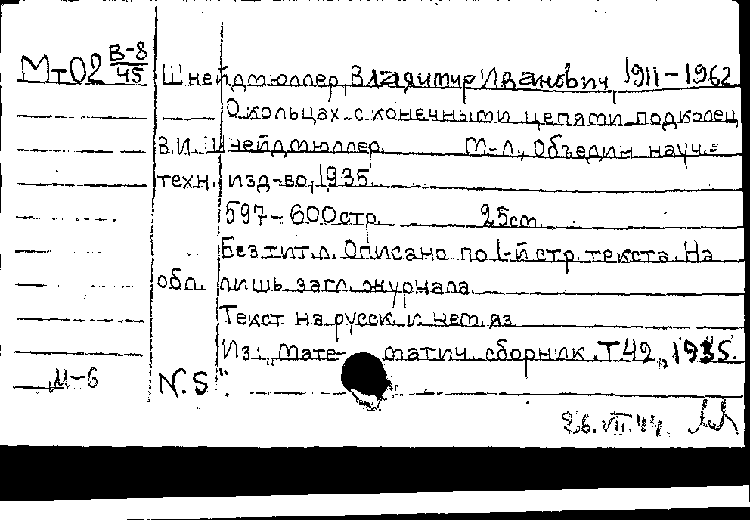 Мт02 В-8/45 Шнейдмюллер, Владимир Иванович, 1911-1962
О кольцах с конечными цепями подколец
В.И. Шнейдмюллер. М-Л, Объедин науч.=
техн. изд-во, 1935.
597-600 стр. 25 cm.
Без тит. л. Описано по 1-й стр. текста. На
обл. лишь загл. журнала
Текст на русск. и нем. яз
Из: „Математич. сборник. Т 42„ 1935.
М-6 N. 5".
26.VII.44.